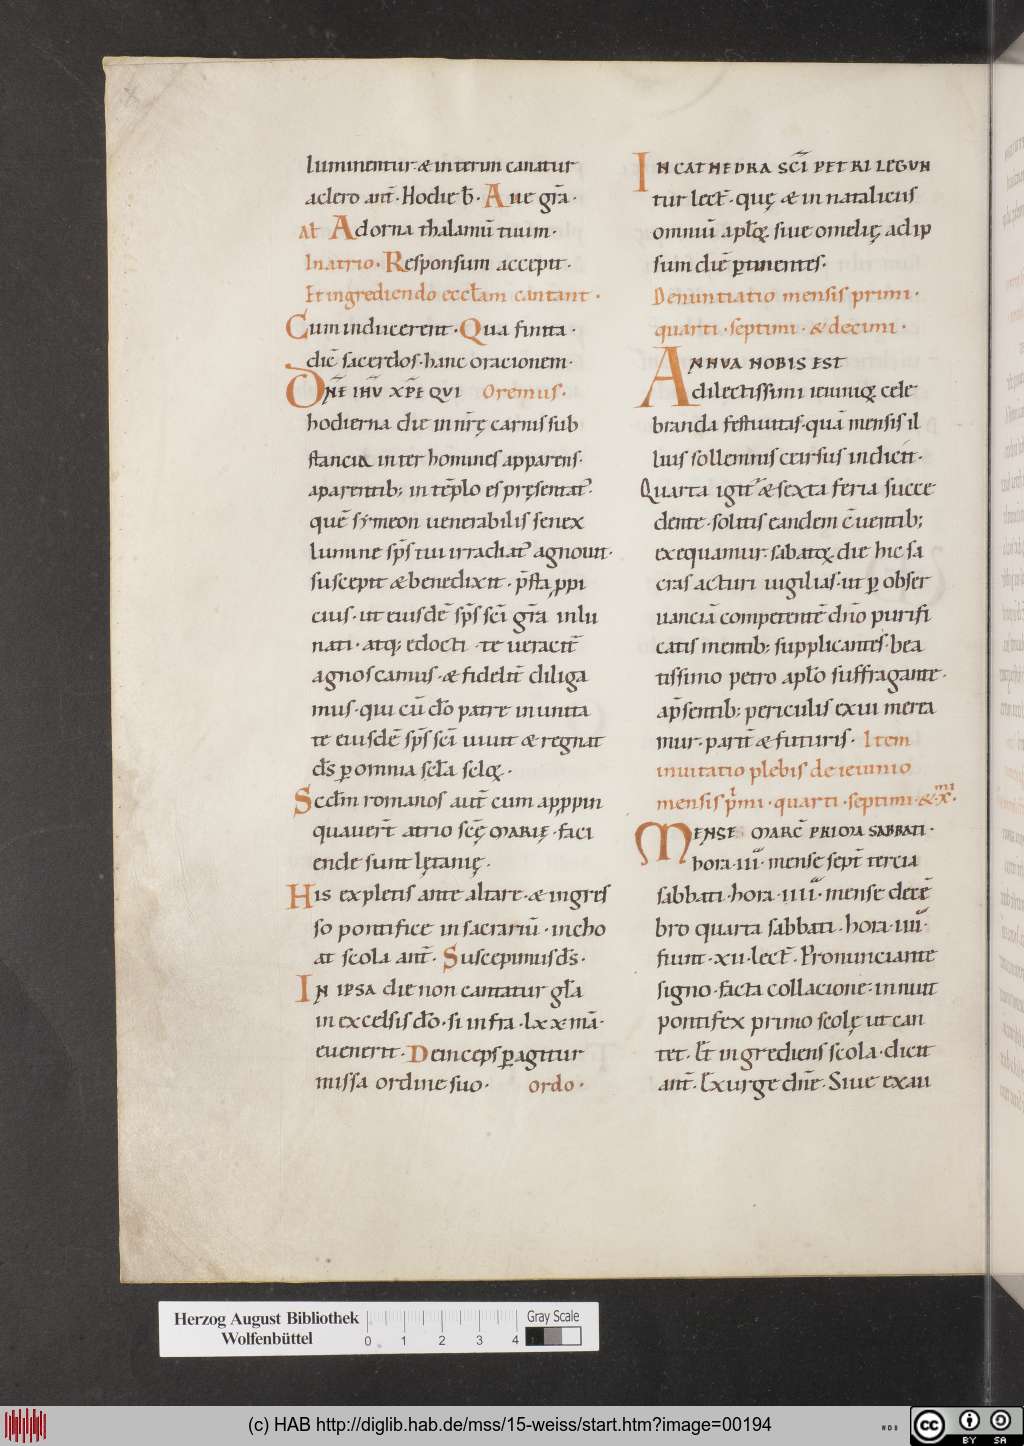 luminentur · & interim canatur
aclero ant̄ · Hodie b̄ · Aue gr̄a ·
Al̄ Adorna thalamū tuum ·
In atrio · Responsum accepit ·
Et ingrediendo eccl̄am cantant ·
Cum inducerent · Qua finita ·
dic̄ sacerdos · hanc oracionem ·
DN̄E IHŪ XP̄E QVI Oremus ·
hodierna die in nr̄ę carnis sub
stancia inter homines apparens ·
aparentib; in tēplo es pręsentat᷒ ·
quē sẏmeon uenerabilis senex
lumine sp̄s tui irradiat᷒ agnouit ·
suscepit & benedixit · p̄sta ꝓpi
cius · ut eiusdē sp̄s sc̄i gr̄a inlu
nati · atq; edocti · te ueracit̄
agnoscamus · & fidelit̄ diliga
mus · qui cū dō patre in unita
te eiusdē sp̄s sc̄i uiuit & regnat
d̄s ꝑ omnia sc̄la sclọꝝ ·
Scd̄m romanos aut̄ cum apꝓpin
quauer̄t atrio sc̄ę MARIĘ · faci
ende sunt lętanię ·
His expletis ante altare · & ingres
so pontifice in sacrariū · incho
at scola ant̄ · Suscepimus d̄s ·
IN IPSA die non cantatur gl̄a
in excelsis dō · si infra · lxx mā ·
euenerit · Deinceps ꝑagitur
missa ordine suo · ordo ·
IN CATHEDRA SC̄I PETRI LEGUN
tur lect̄ · quę & in nataliciis
omniū apl̄oꝝ siue omelię ad ip
sum diē ꝑtinentes ·
Denuntiatio mensis primi ·
quarti · septimi · & decimi ·
ANNVA NOBIS EST
dilectissimi ieiunioꝝ cele
branda festiuitas · quā mensis il
lius sollemnis cursus indicit ·
Quarta igit᷒ & sexta feria succe
dente · solitis eandem c̄uentib;
exequamur · sabatoꝝ die hic sa
cras acturi uigilias · ut ꝑ obser
uanciā competentē dn̄o purifi
catis mentib; supplicantes · bea
tissimo petro apl̄o suffragante ·
ap̄sentib; periculis exui merea
mur · parit̄ & futuris · Item
inuitatio plebis de ieiunio
mensis p̄mi · quarti · septimi · & · x · mi
MENSE MARC̄ PRIMA SABBATI ·
hora · iii · mense sept̄ tercia
sabbati · hora · iiii · mense decē
bro quarta sabbati · hora · iiii ·
fiunt · xii · lect̄ · Pronunciante
signo · facta collacione · innuit
pontifex primo scolę ut can
tet · Et ingrediens scola · dicit
ant̄ · Exurge dn̄e · Siue exau
Herzog August Bibliothek
Wolfenbüttel
0 1 2 3 4
Gray Scale
(c) HAB http://diglib.hab.de/mss/15-weiss/start.htm?image=00194
WDB
cc BY SA